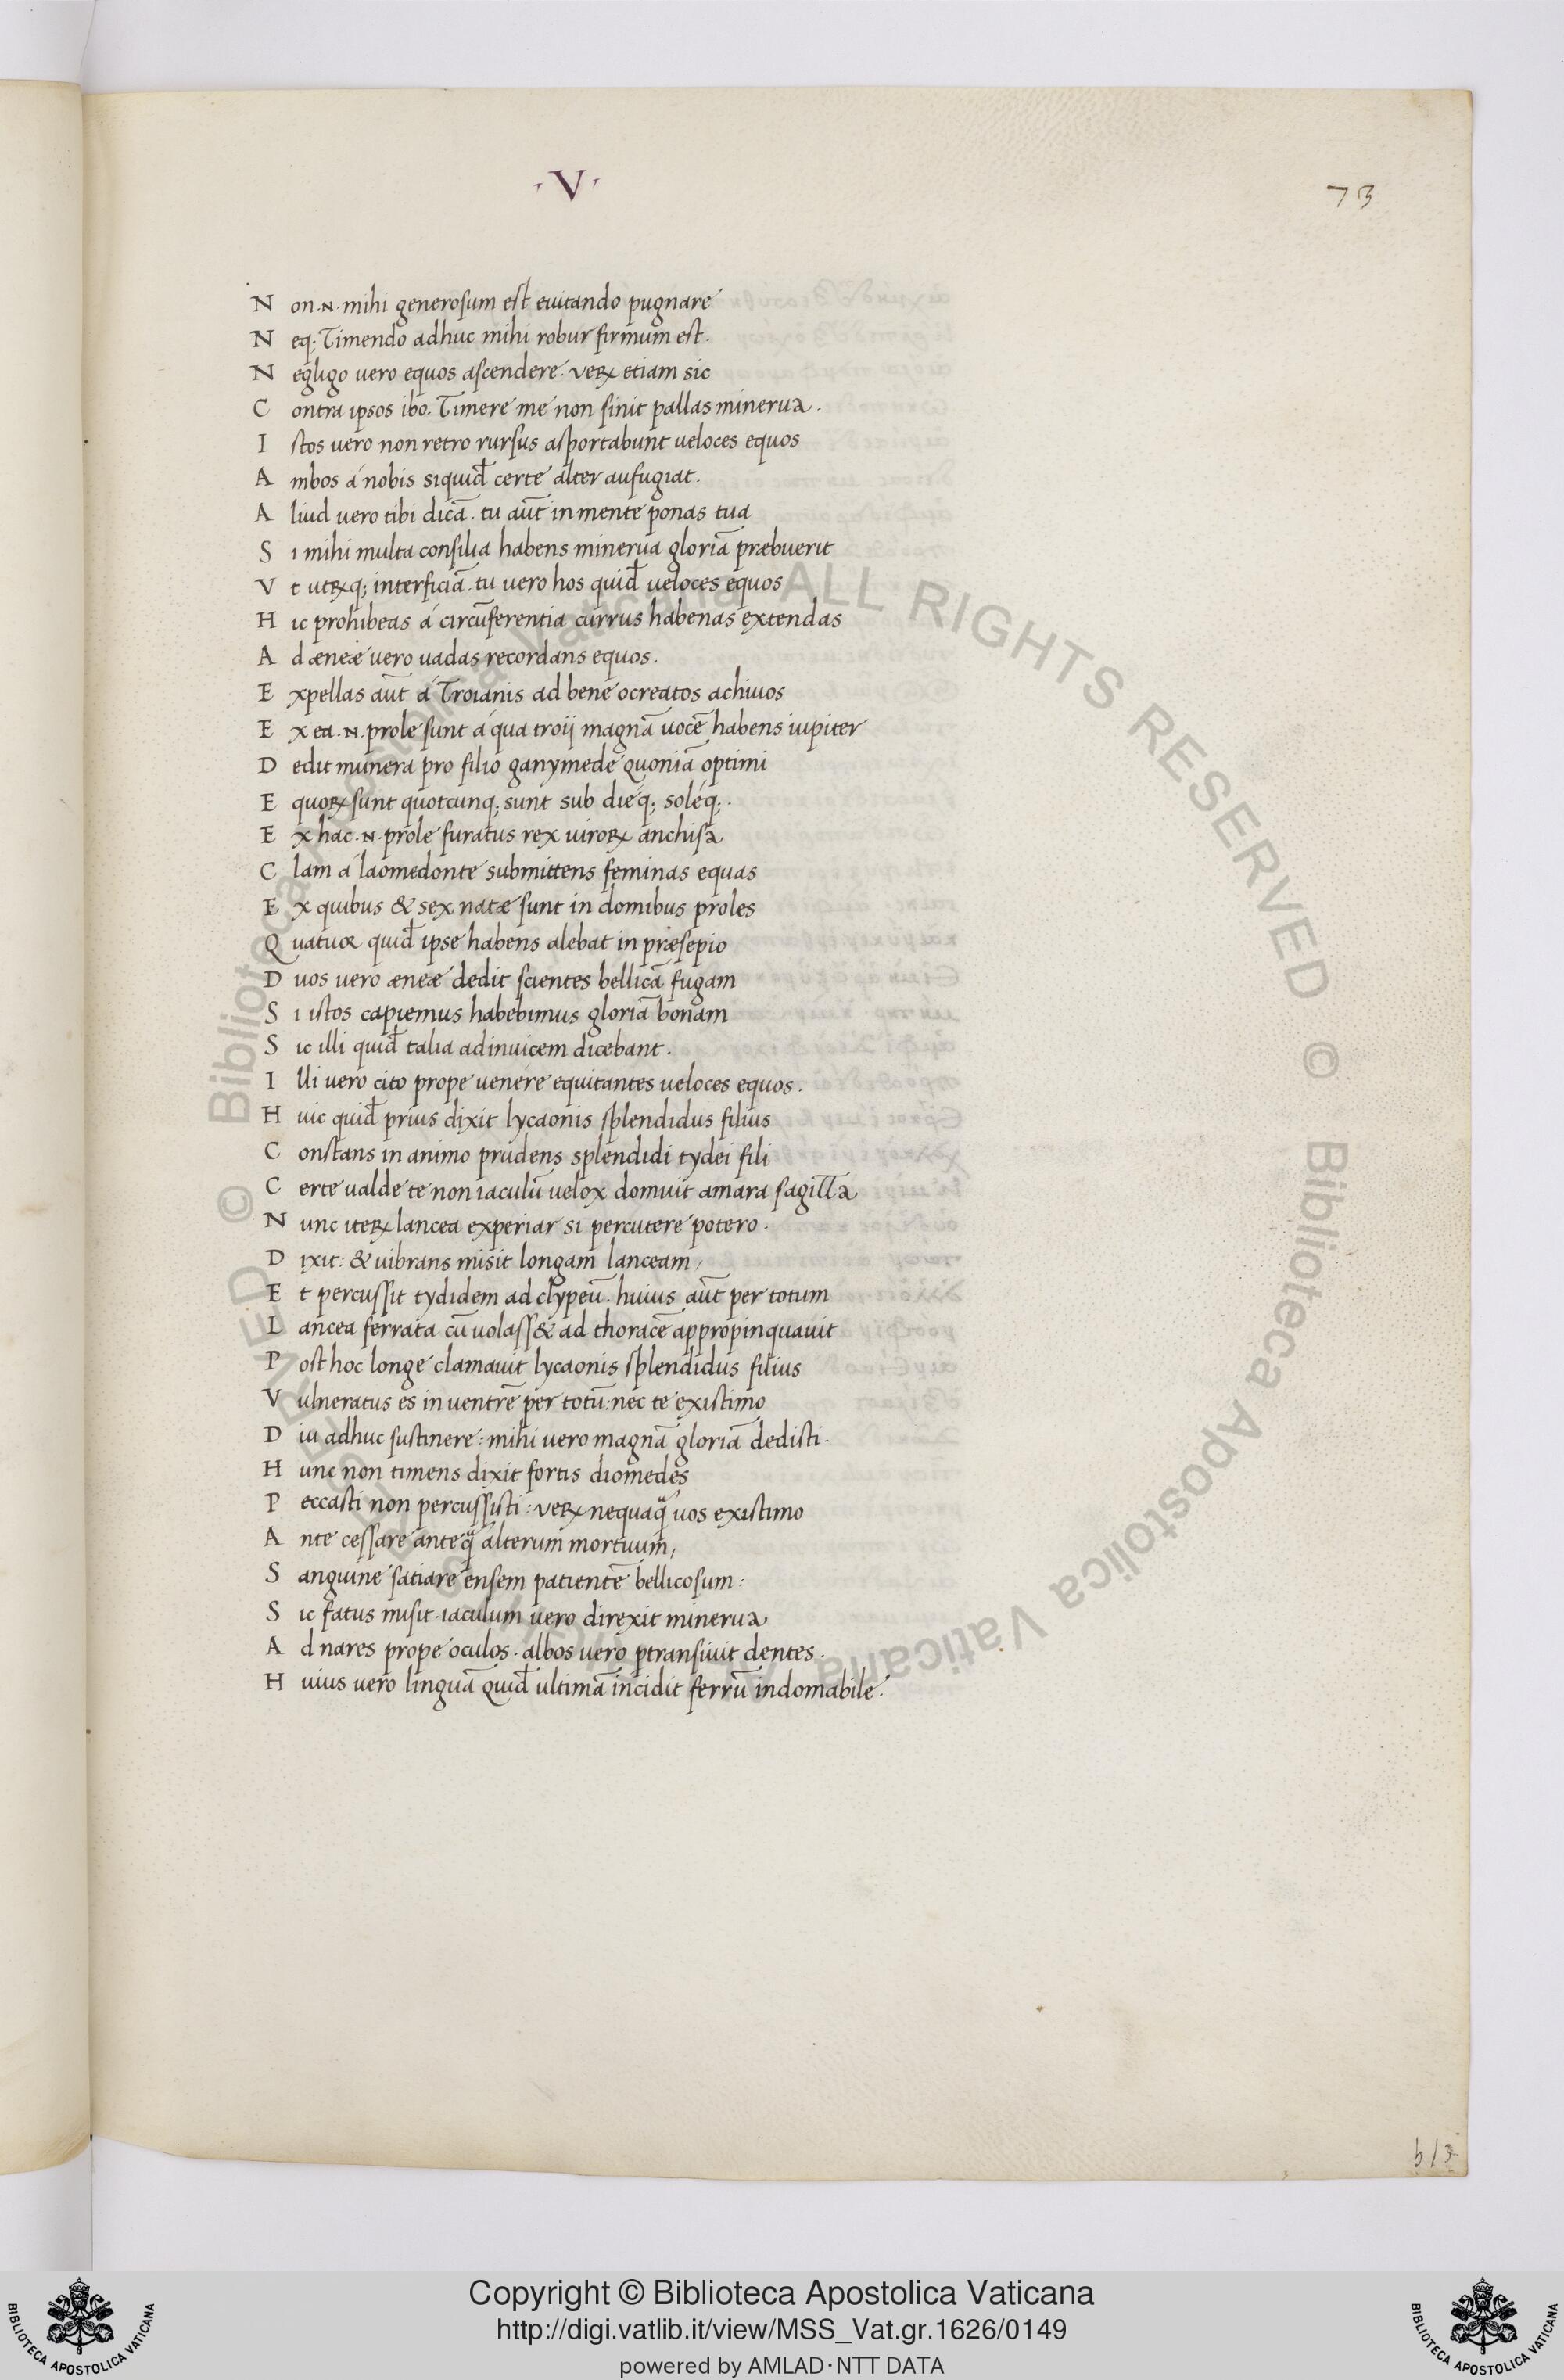 ·V·
73
Non .N. mihi generosum est euitando pugnare
Neq; Timendo adhuc mihi robur firmum est.
Negligo uero equos ascendere. verꝝ etiam sic
Contra ipsos ibo. Timere me non sinit pallas minerua.
Istos uero non retro rursus asportabunt ueloces equos
Ambos á nobis siquid̄ certe alter aufugiat.
Aliud uero tibi dicā. tu aūt in mente ponas tua
Si mihi multa consilia habens minerua gloriā præbuerit
Vt utrꝝq; interficiā. tu uero hos quid̄ ueloces equos
Hic prohibeas á circūferentia currus habenas extendas
Ad æneæ uero uadas recordans equos.
Expellas aūt á Troianis ad bene ocreatos achiuos
Ex ea .N. prole sunt á qua troij magnā uocē habens iupiter
Dedit munera pro filio ganymede quoniā optimi
Equoꝝ sunt quotcunq; sunt sub dieq; soleq;.
Ex hac .N. prole furatus rex uiroꝝ anchisa
Clam á laomedonte submittens feminas equas
Ex quibus & sex natæ sunt in domibus proles
Quatuor quid̄ ipse habens alebat in præsepio
Duos uero æneæ dedit scientes bellicā fugam
Si istos capiemus habebimus gloriā bonam
Sic illi quid̄ talia adinuicem dicebant.
Illi uero cito prope uenére equitantes ueloces equos.
Huic quid̄ prius dixit lycaonis splendidus filius
Constans in animo prudens splendidi tydei fili
Certe ualde te non iaculū uelox domuit amara sagitta
Nunc iterꝝ lancea experiar si percutere potero.
Dixit: & uibrans misit longam lanceam,
Et percussit tydidem ad clypeū. huius aūt per totum
Lancea ferrata cū uolass& ad thoracē appropinquauit
Post hoc longe clamauit lycaonis splendidus filius
Vulneratus es in uentrē per totū: nec te existimo
Diu adhuc sustinere: mihi uero magnā gloriā dedisti.
Hunc non timens dixit fortis diomedes
Peccasti non percussisti: verꝝ nequaq̄ uos existimo
Ante cessare anteq̄ alterum mortuum,
Sanguine satiare ensem patientē bellicosum:
Sic fatus misit. iaculum uero direxit minerua
Ad nares prope oculos. albos uero ptransiuit dentes.
Huius uero linguā quid̄ ultimā incidit ferrū indomabile.
© Biblioteca Apostolica Vaticana ALL RIGHTS RESERVED © Biblioteca Apostolica Vaticana
Copyright © Biblioteca Apostolica Vaticana
http://digi.vatlib.it/view/MSS_Vat.gr.1626/0149
powered by AMLAD·NTT DATA
BIBLIOTECA APOSTOLICA VATICANA
BIBLIOTECA APOSTOLICA VATICANA